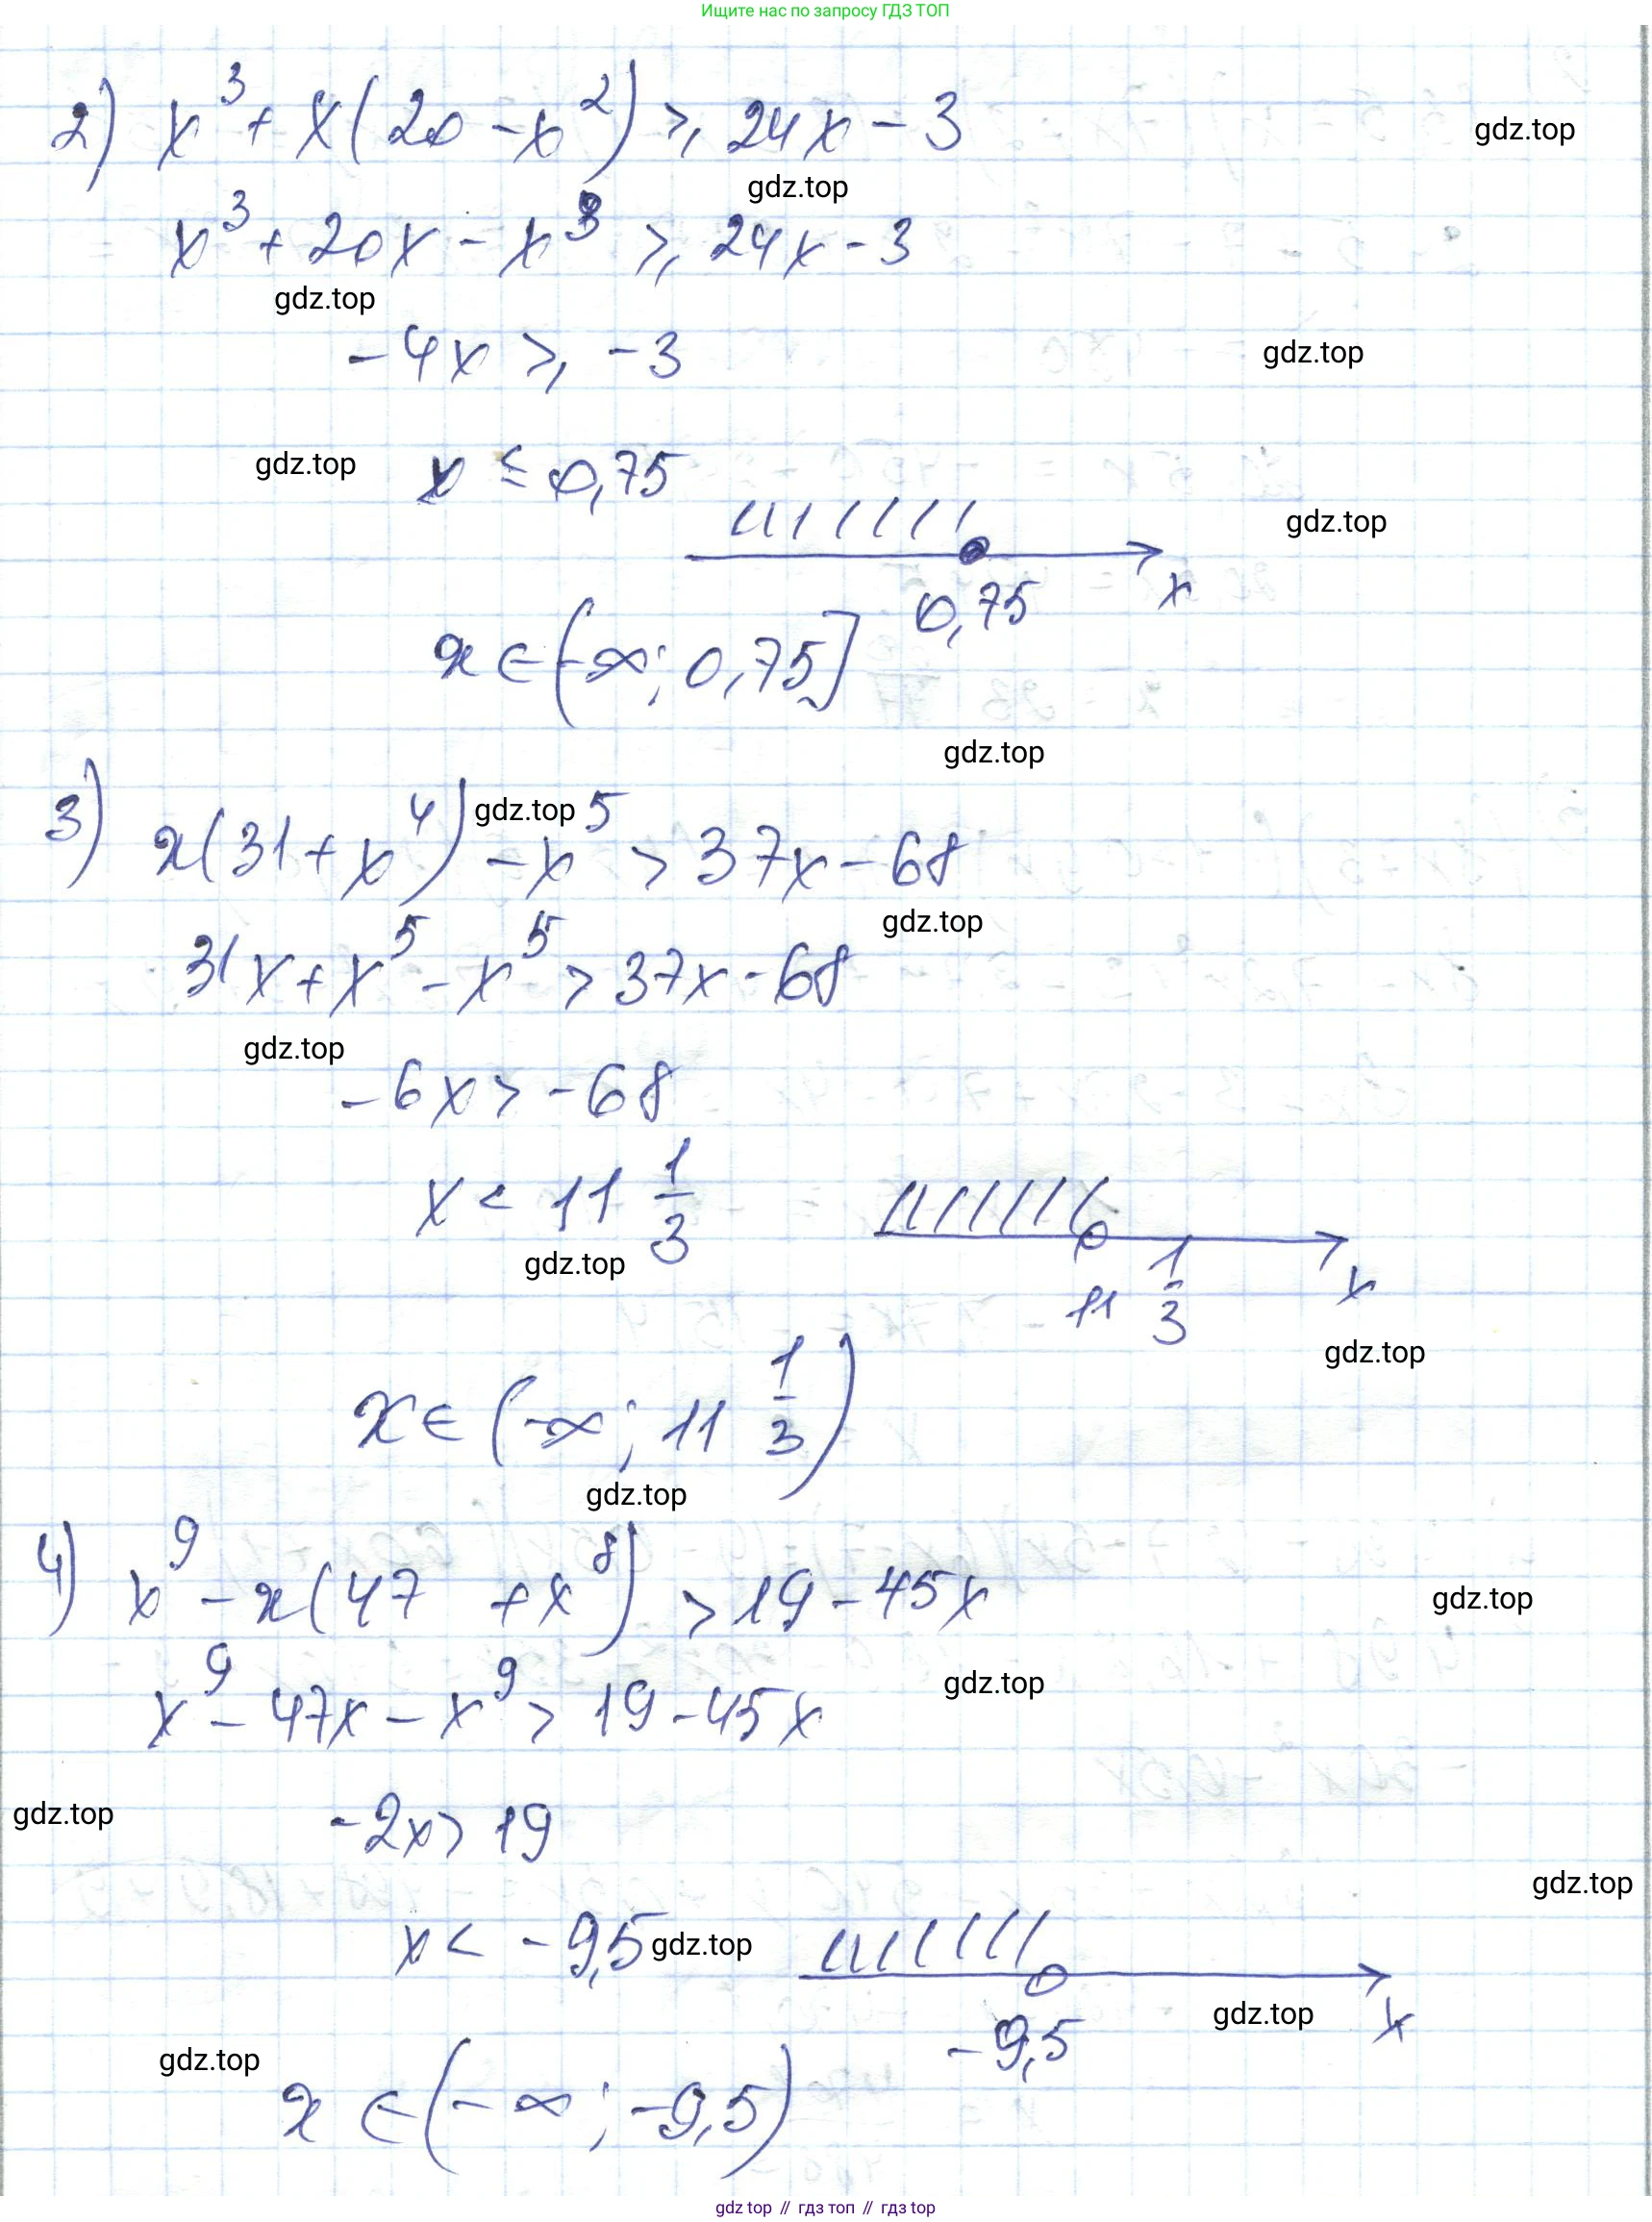 Ищите нас по запросу ГДЗ ТОП
2) x³ + x(20 - x²) ≥ 24x - 3
gdz.top
gdz.top
x³ + 20x - x³ ≥ 24x - 3
gdz.top
-4x ≥ -3
gdz.top
gdz.top
x ≤ 0,75
gdz.top
0,75
x
x ∈ (-∞; 0,75]
gdz.top
3) x(31 + x⁴) - x⁵ > 37x - 68
gdz.top
31x + x⁵ - x⁵ > 37x - 68
gdz.top
gdz.top
-6x > -68
x < 11 1/3
gdz.top
11 1/3
x
gdz.top
x ∈ (-∞; 11 1/3)
gdz.top
4) x⁹ - x(47 + x⁸) > 19 - 45x
gdz.top
x⁹ - 47x - x⁹ > 19 - 45x
gdz.top
gdz.top
-2x > 19
gdz.top
x < -9,5
gdz.top
-9,5
gdz.top
x
gdz.top
x ∈ (-∞; -9,5)
gdz top // гдз топ // гдз top